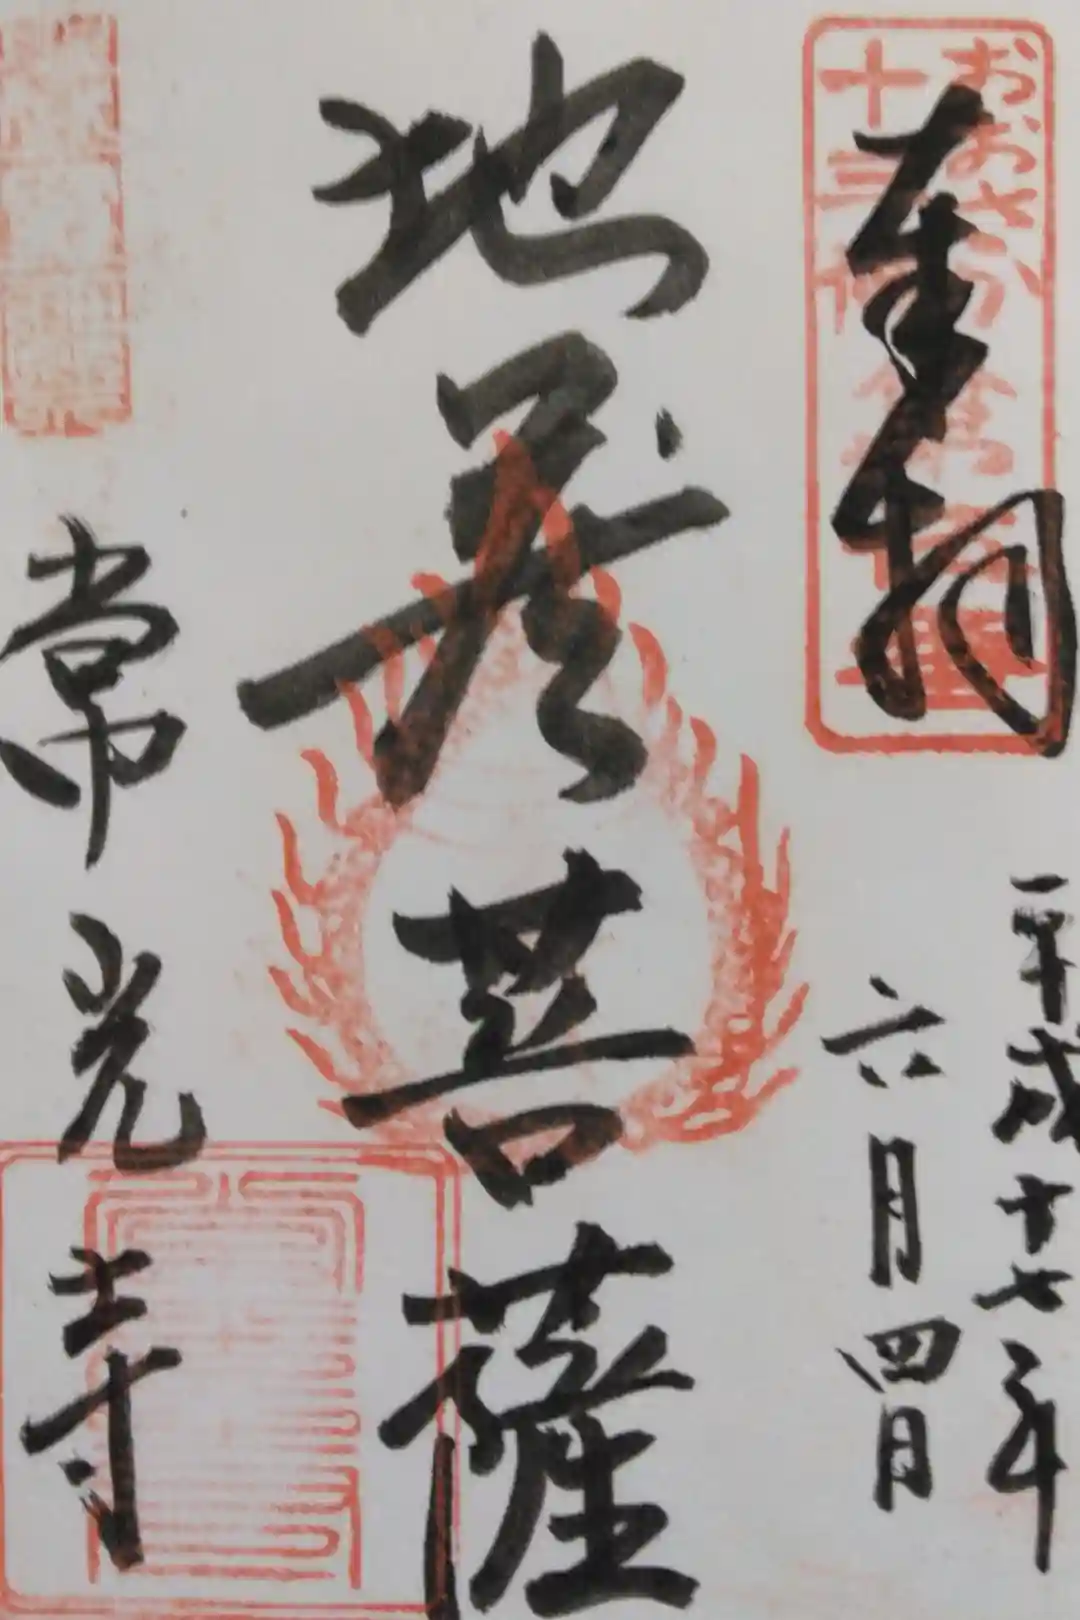 奉拝
おおさか
十三仏
平成十七年
六月四日
地蔵菩薩
常光寺